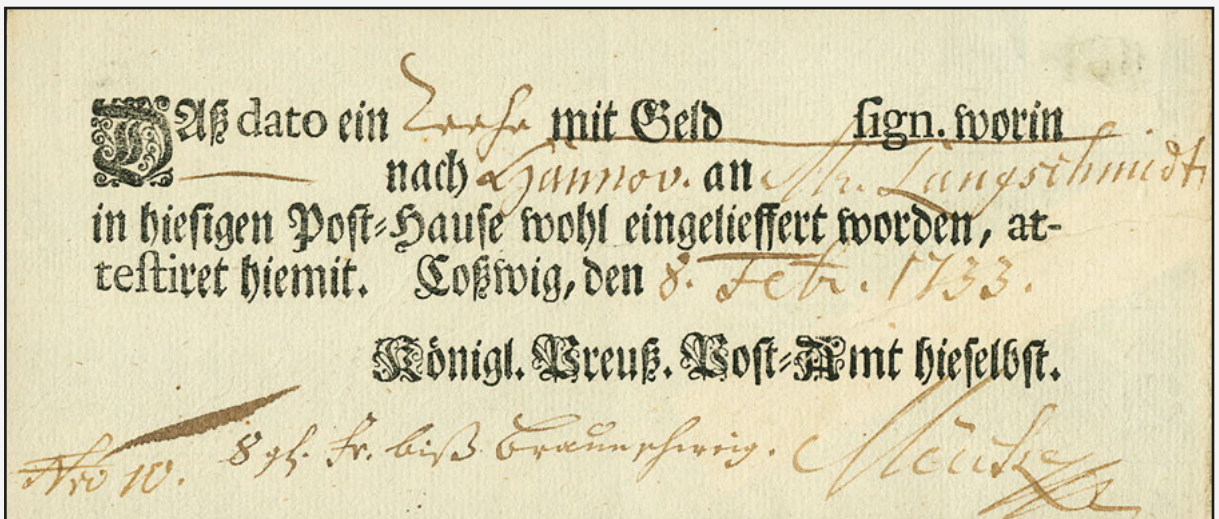 DAß dato ein mit Geld sign. worin
nach Hannov. an Mr. Langschmidt
in hiesigen Post-Hause wohl eingelieffert worden, at-
testiret hiemit. Coßwig, den 8. Febr. 1733.
Königl. Preuß. Post-Amt hieselbst.
8 gl. fr. biß Braunschweig.
No 10.